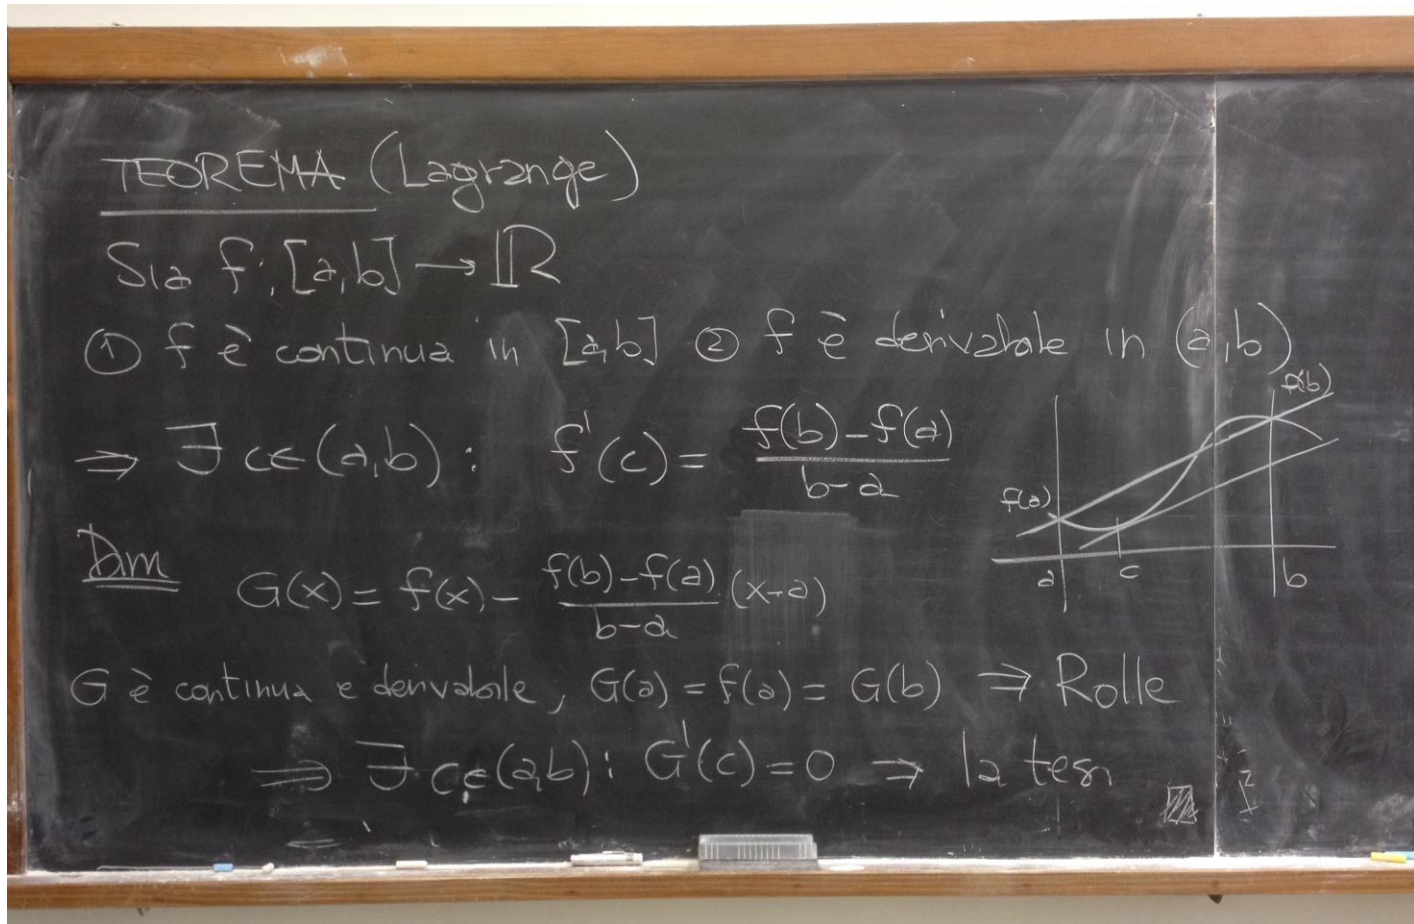 TEOREMA (Lagrange)
Sia f: [a,b] → ℝ
① f è continua in [a,b] ② f è derivabile in (a,b)
⇒ ∃ c∈(a,b): f'(c) = (f(b)-f(a))/(b-a)
f(b)
f(a)
a c b
Dim
G(x) = f(x) - (f(b)-f(a))/(b-a) (x-a)
G è continua e derivabile, G(a) = f(a) = G(b) ⇒ Rolle
⇒ ∃ c∈(a,b): G'(c) = 0 ⇒ la tesi